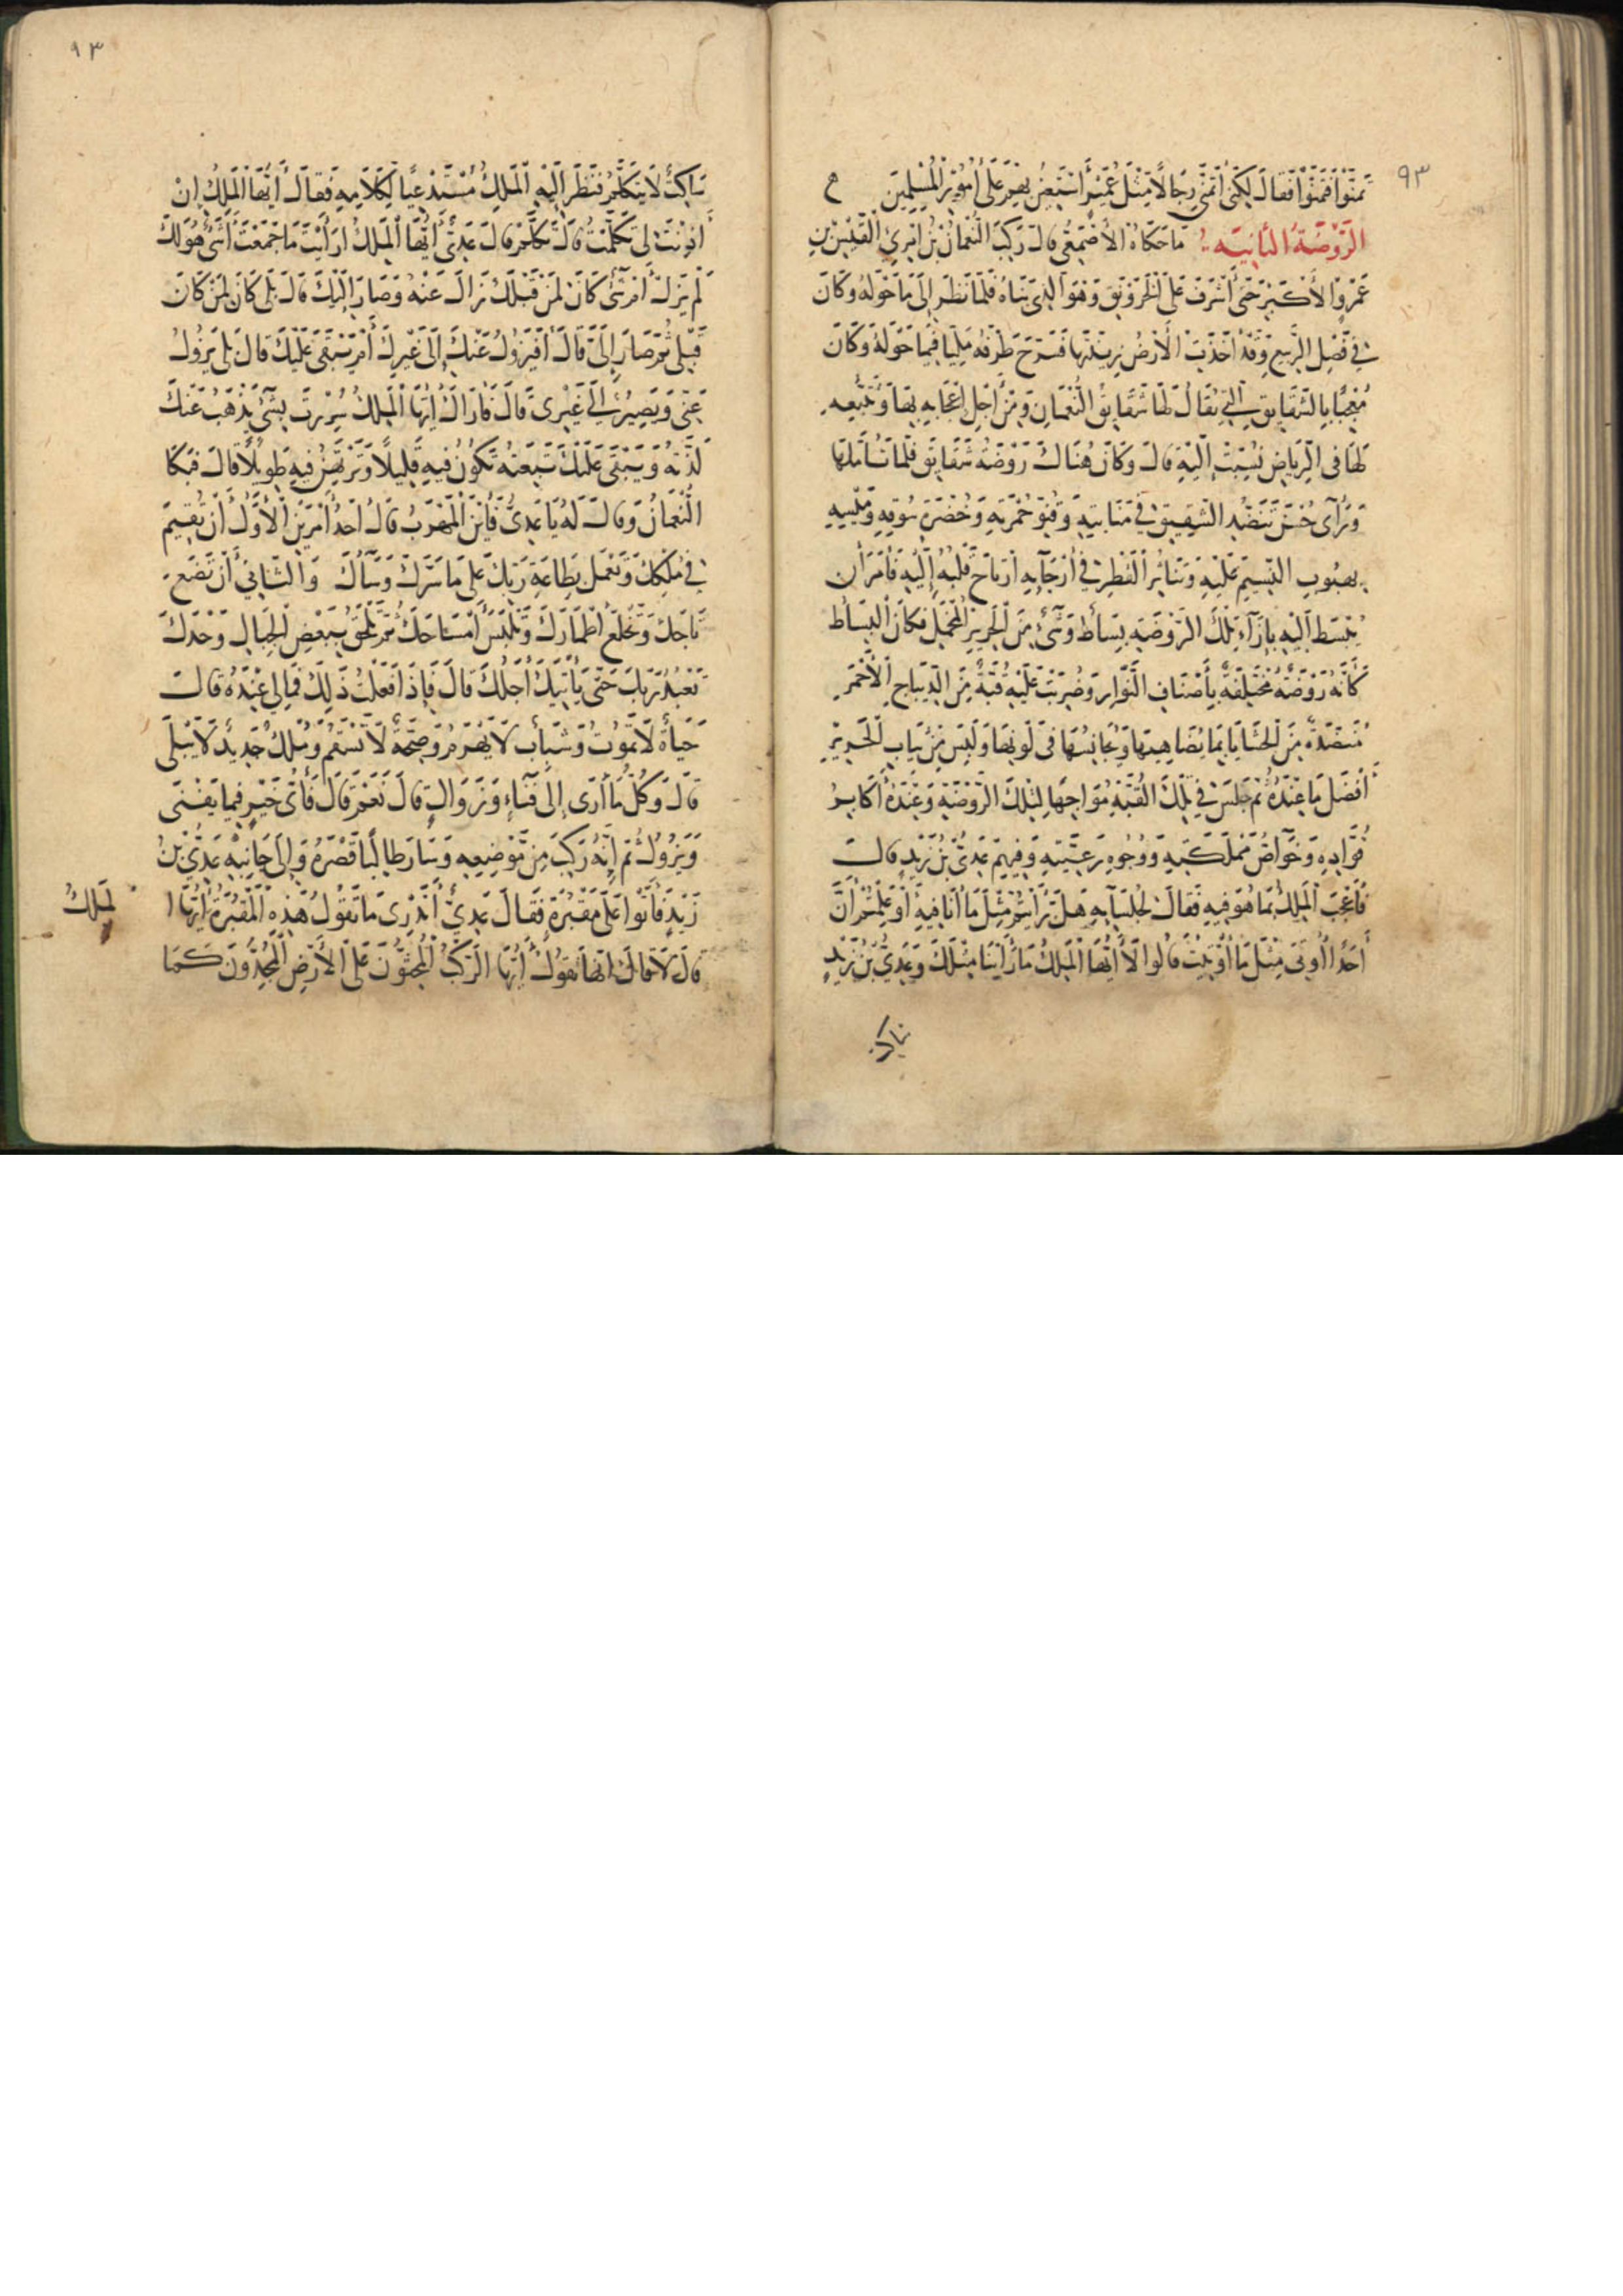 ٩٣
تمنّوا فتمنّوا فقال لكني أتمنى رجالا مثل عمير أستعين بهم على أمور المسلمين م
الروضة الثانية ما حكاه الأصمعي قال ركب النعمان بن امرئ القيس بن
عمرو الأكبر حتى أشرف على الخورنق وهو الذي بناه فلما نظر إلى ما حوله وكان
في فصل الربيع وقد أخذت الأرض زينتها فسرح طرفه مليا فيما حوله وكان
معجبا بالشقايق التي يقال لها شقايق النعمان ومن أجل إعجابه بها وتتبعه
لها في الرياض نسبت إليه قال وكان هناك روضة شقايق فلما تأملها
ورأى حسن تنضيد الشقيق في منابته وقنو حمرته وخضرة سوقه وميسه
بهبوب النسيم عليه وتناثر القطر في أرجآيه ارتاح قلبه إليه فأمر أن
يبسط إليه بإزآء تلك الروضة بساط وشيء من الحرير المخمل فكان البساط
كأنه روضة مختلفة بأصناف النوار وضربت عليه قبة من الديباج الأحمر
منضدة من الحشايا بما يضاهيها ويجانسها في لونها ولبس من ثياب الحرير
أفضل ما عنده ثم جلس في تلك القبة مواجها لتلك الروضة وعنده أكابر
قواده وخواص مملكته ووجوه رعيته وفيهم عدي بن زيد قال
فأعجب الملك بما هو فيه فقال لجلسآيه هل رأيتم مثل ما أنا فيه أو علمتم أن
أحدا أوتي مثل ما أوتيت قالوا لا أيها الملك ما رأينا مثلك وعدي بن زيد
ساكت
٩٣
ساكت لا يتكلم فنظر إليه الملك مستدعيا لكلامه فقال أيها الملك إن
أذنت لي تكلمت قال تكلم قال عدي أيها الملك أرأيت ما جمعت أشيء هو لك
لم يزل أم شيء كان لمن قبلك زال عنه وصار إليك قال بلى كان لمن كان
قبلي ثم صار إلي قال أفيزول عنك إلى غيرك أم يبقى عليك قال بلى يزول
عني ويصير إلى غيري قال فأراك أيها الملك سررت بشيء يذهب عنك
لذته ويبقى عليك تبعته تكون فيه قليلا وترتهن فيه طويلا قال فبكا
النعمان وقال له يا عدي فأين المهرب قال أحد أمرين الأول أن تقيم
في ملكك وتعمل بطاعة ربك على ما سرك وسآك والثاني أن تضع
تاجك وتخلع أطمارك وتلبس أمساحك ثم تلحق ببعض الجبال وحدك
تعبد ربك حتى يأتيك أجلك قال فإذا فعلت ذلك فما لي عنده قال
حياة لا تموت وشباب لا يهرم وصحة لا تسقم وملك جديد لا يبلى
قال وكل ما أرى إلى فنآء وزوال قال نعم قال فأي خير فيما يفنى
ويزول ثم إنه ركب من موضعه وسار طالبا قصره وإلى جانبه عدي بن
زيد فأتوا على مقبرة فقال عدي أتدري ما تقول هذه المقبرة أيها ا
لملك
قال لا قال إنها تقول أيها الركب المحثون على الأرض المجدون كما